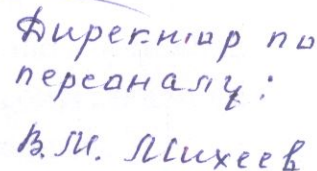 Директор по
персоналу:
В.М. Михеев